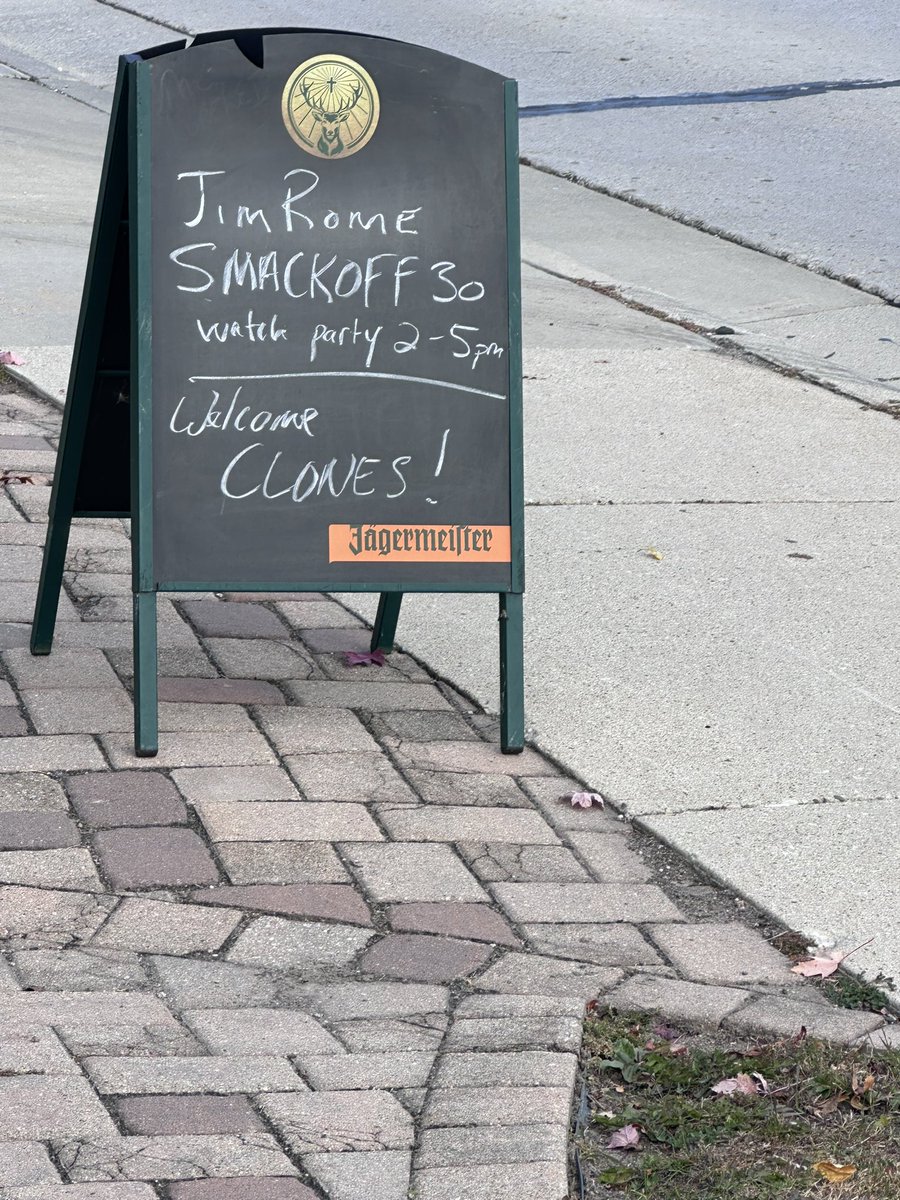 Jim Rome
SMACKOFF 30
Watch party 2-5pm
Welcome
CLONES!
Jägermeister